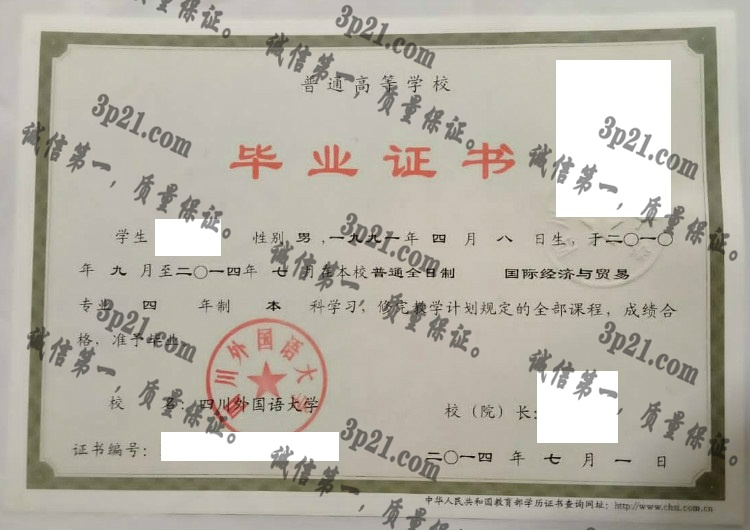 普通高等学校
毕业证书
学生 性别 男 ,一九九一年 四 月 八 日生, 于二〇一〇
年 九 月至二〇一四年 七 月在本校 普通全日制 国际经济与贸易
专业 四 年制 本 科学习, 修完教学计划规定的全部课程, 成绩合
格, 准予毕业。
四川外国语大学
校 名: 四川外国语大学
校（院）长:
证书编号:
二〇一四 年 七 月 一 日
中华人民共和国教育部学历证书查询网址: http://www.chsi.com.cn
3p21.com
诚信第一，质量保证。
3p21.com
诚信第一，质量保证。
3p21.com
诚信第一，质量保证。
3p21.com
诚信第一，质量保证。
3p21.com
诚信第一，质量保证。
3p21.com
诚信第一，质量保证。
3p21.com
诚信第一，质量保证。
3p21.com
诚信第一，质量保证。